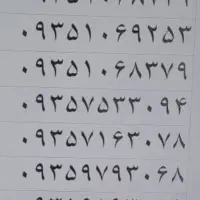 ۰۹۳۵۱۰۶۹۲۵۳
۰۹۳۵۱۰۶۸۳۷۹
۰۹۳۵۷۵۳۳۰۹۴
۰۹۳۵۷۱۶۳۰۷۸
۰۹۳۵۹۷۹۳۰۶۸